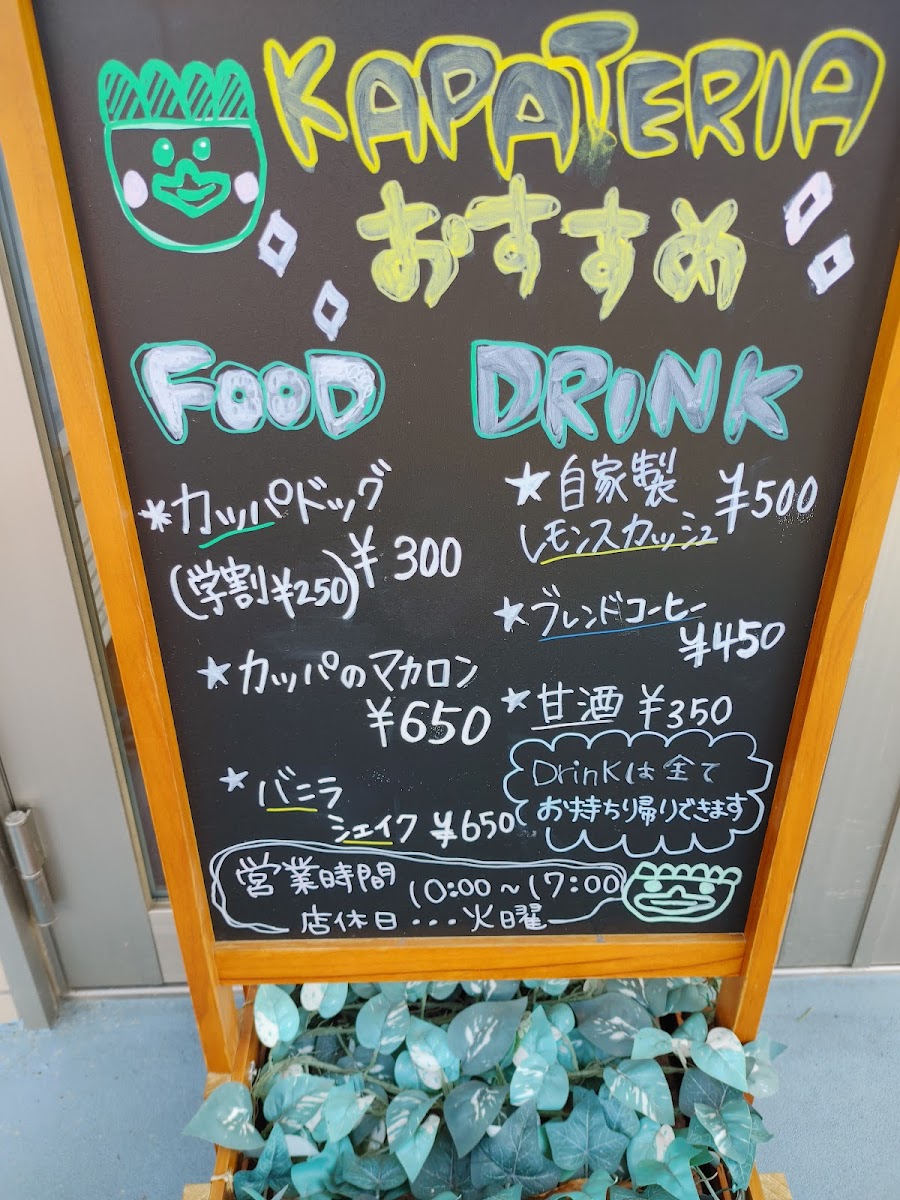 KAPATERIA
おすすめ
FOOD
*カッパドッグ
(学割¥250)¥300
★カッパのマカロン
¥650
★バニラ
シェイク ¥650
DRINK
★自家製
レモンスカッシュ ¥500
★ブレンドコーヒー
¥450
★甘酒 ¥350
Drinkは全て
お持ち帰りできます
営業時間 10:00~17:00
店休日...火曜